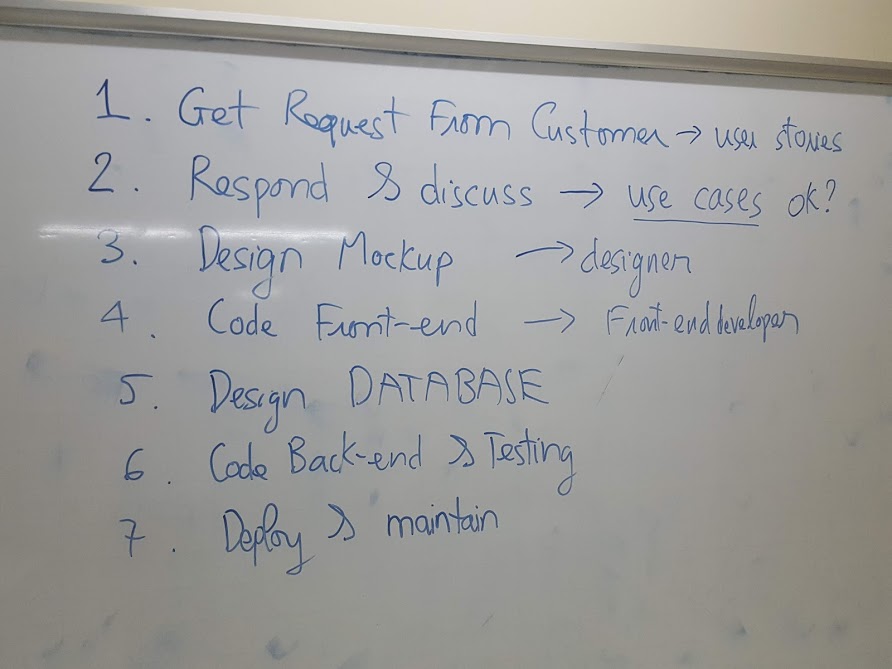 1. Get Request From Customer → user stories
2. Respond & discuss → use cases ok?
3. Design Mockup → designer
4. Code Front-end → Front-end developer
5. Design DATABASE
6. Code Back-end & Testing
7. Deploy & maintain